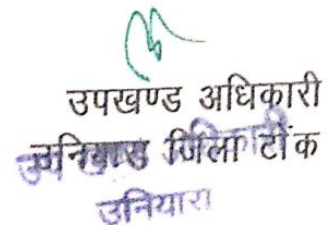 उपखण्ड अधिकारी
उनियारा जिला टोंक
उनियारा